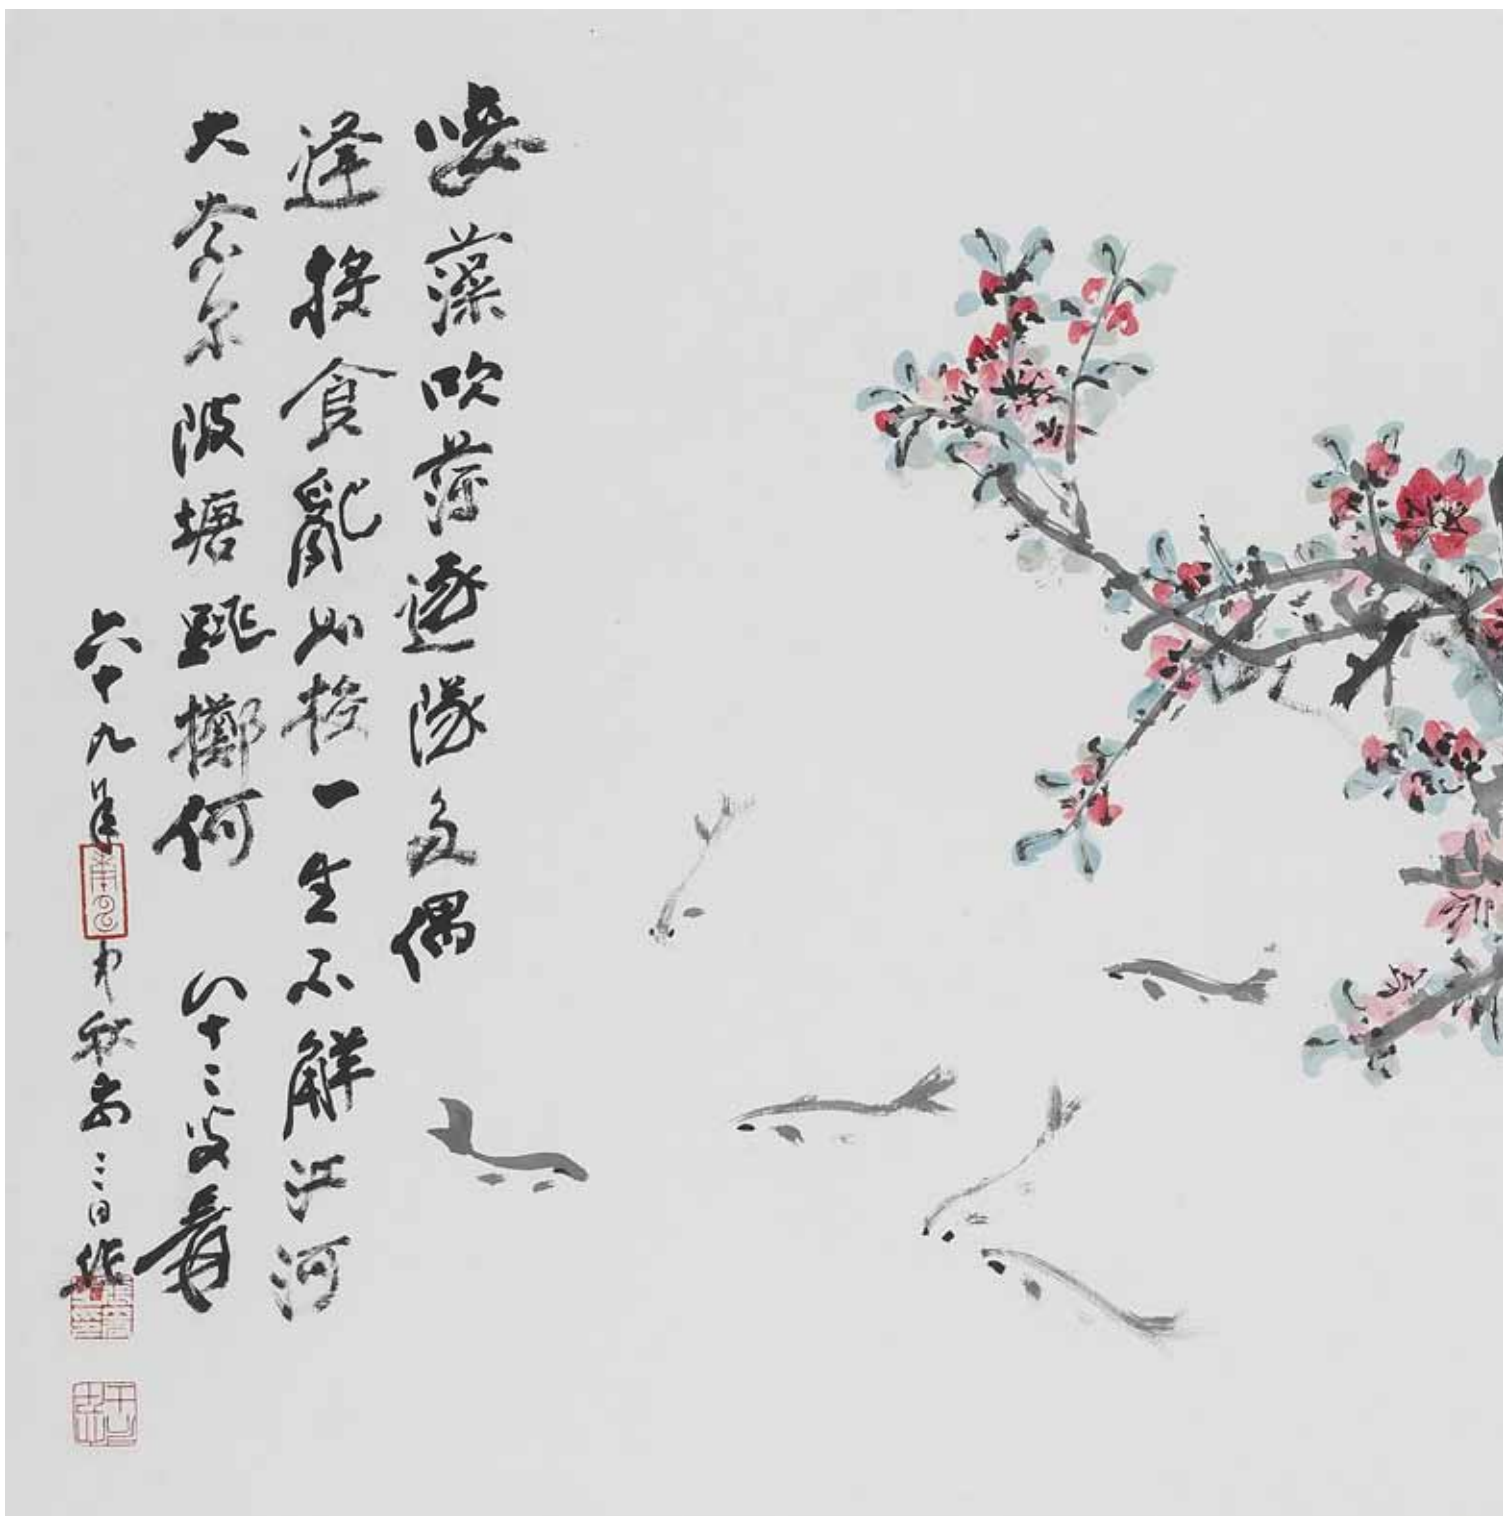 唼藻吹萍逐隊多偶
逢投食亂如梭一生不解江河
大奈尔陂塘跳擲何 八十二叟爰
六十九年中秋前二日作